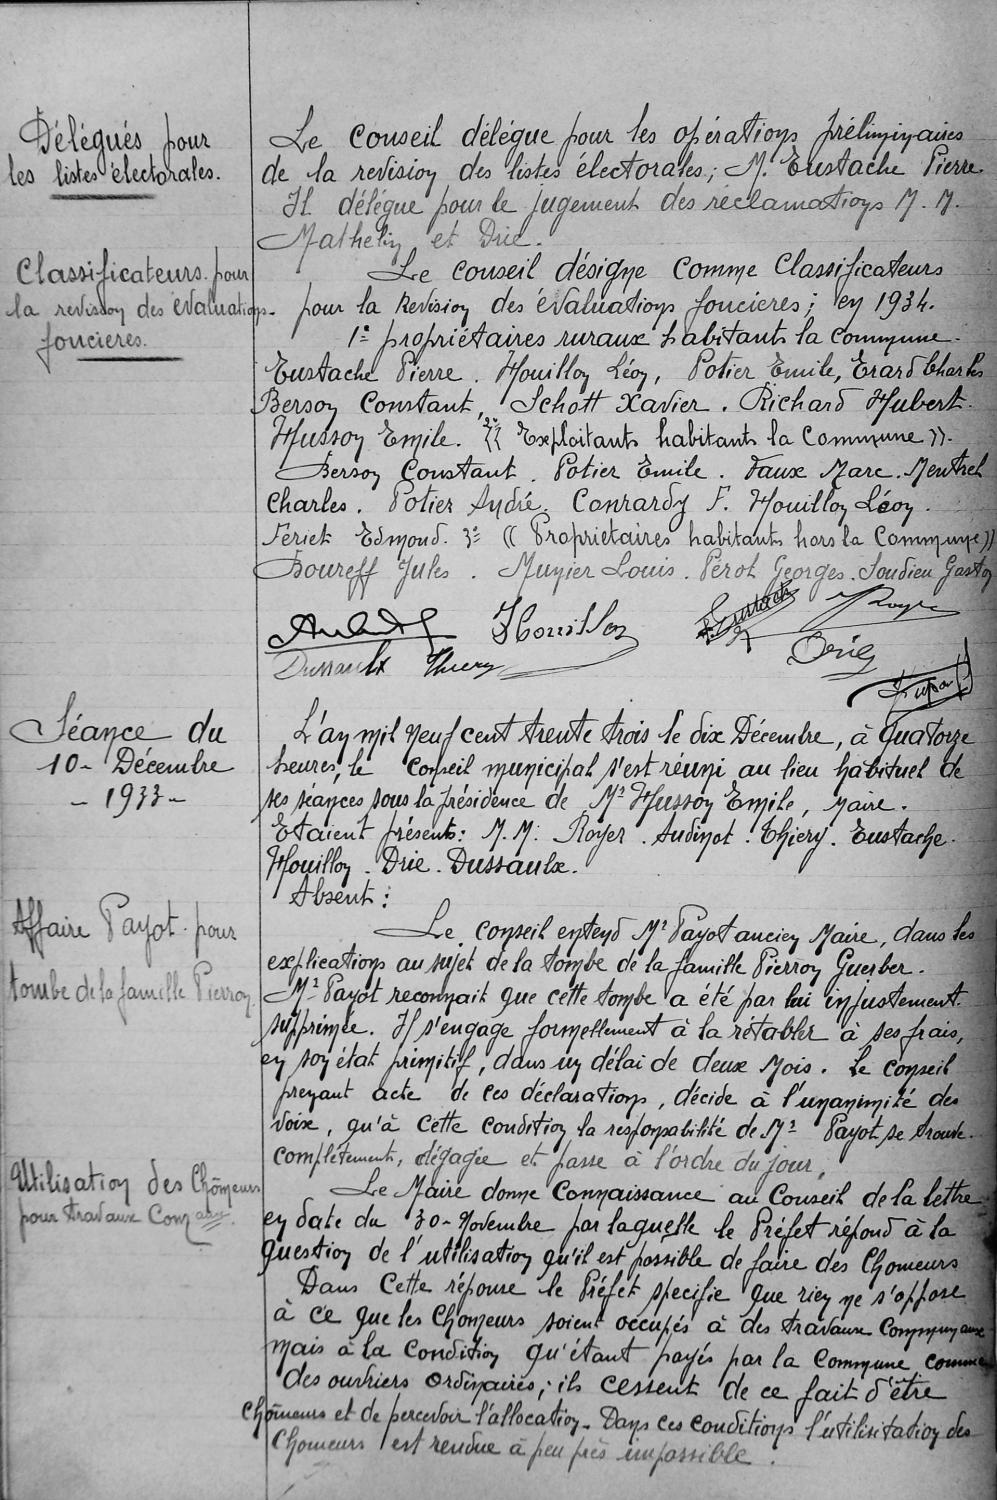 Délégués pour
les listes électorales.
Le conseil délégue pour les opérations préliminaires
de la revision des listes électorales; M. Eustache Pierre
Il délégue pour le jugement des réclamations M. M.
Mathelin et Drie.
Classificateurs pour
la revision des évaluations
foncieres.
Le conseil désigne comme Classificateurs
pour la Revision des évaluations foncieres; en 1934.
1º propriétaires ruraux habitants la commune.
Eustache Pierre. Houillon Léon, Potier Emile, Erard Charles
Berson Constant, Schott Xavier. Richard Hubert.
Husson Emile. 2º (( Exploitants habitants la Commune )).
Berson Constant. Potier Emile. Vaux Marc. Mentrel
Charles. Potier André. Conrardy F. Houillon Léon.
Feriet Edmond. 3º (( Propriétaires habitants hors la Commune ))
Boureff Jules. Munier Louis. Pérot Georges. Soudieu Gaston
Houillon
Eustache
Royer
Drie
Dussaulx Thiery
Séance du
10- Décembre
- 1933-
L'an mil neuf cent trente trois le dix Décembre, à Quatorze
heures, le conseil municipal s'est réuni au lieu habituel de
ses séances sous la présidence de Mr Husson Emile, Maire.
Etaient présents: M.M. Royer. Audinot. Thiery. Eustache.
Houillon. Drie. Dussaulx.
Absent:
Affaire Payot. pour
tombe de la famille Pierron
Le conseil entend Mr Payot ancien Maire, dans les
explications au sujet de la tombe de la famille Pierron Guerber.
Mr Payot reconnait que cette tombe a été par lui injustement
supprimée. Il s'engage formellement à la rétabler à ses frais,
en son état primitif, dans un délai de deux Mois. Le conseil
prenant acte de ces déclarations, décide à l'unanimité des
voix, qu'à cette condition la responsabilité de Mr Payot se trouve
complétement, dégagée et passe à l'ordre du jour,
Utilisation des Chômeurs
pour travaux Comaux.
Le Maire donne Connaissance au Conseil de la lettre
en date du 30- Novembre par laquelle le Préfet répond à la
question de l'utilisation qu'il est possible de faire des Chomeurs
Dans Cette réponse le Préfet specifie que rien ne s'oppose
à ce que les Chomeurs soient occupés à des travaux Communaux
mais à la Condition qu'étant payés par la Commune comme
des ouvriers ordinaires; ils cessent de ce fait d'être
Chomeurs et de percevoir l'allocation. Dans ces conditions l'utilisitation des
Chomeurs est rendue à peu près impossible.